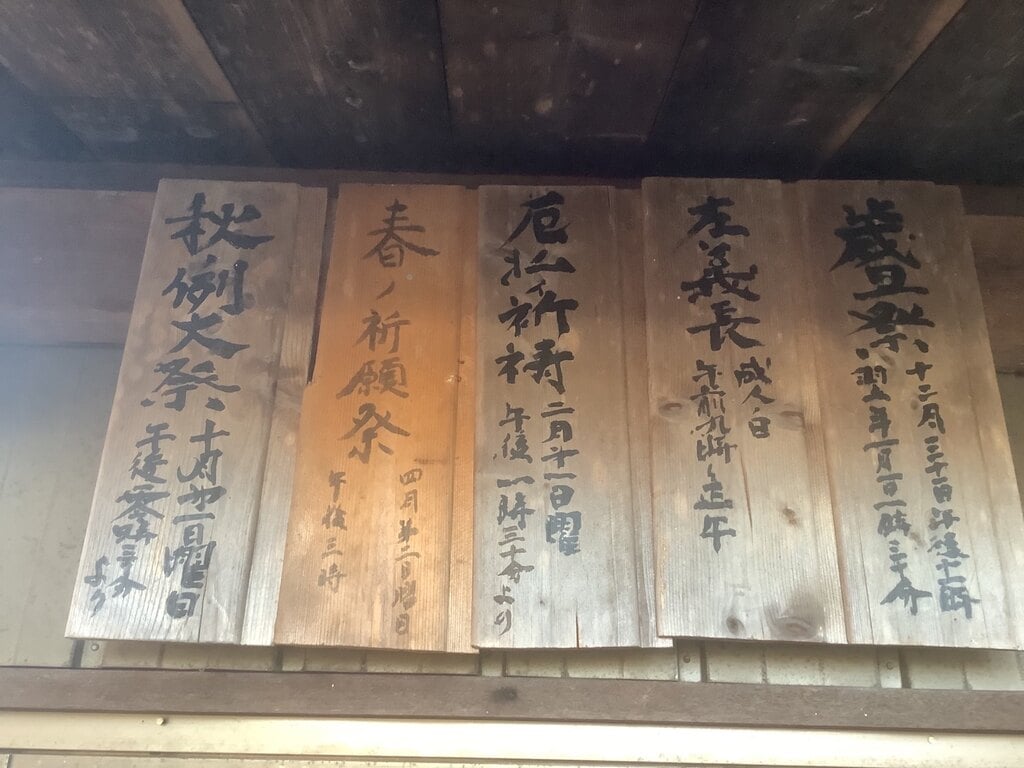 歳旦祭
十二月三十一日午後十一時
翌年一月一日一時三十分
左義長
成人ノ日
午前九時〜正午
厄払イ祈祷
二月十一日
午後一時三十分より
春ノ祈願祭
四月第二日曜日
午後三時
秋ノ例大祭
十月第一日曜日
午後零時三十分
より